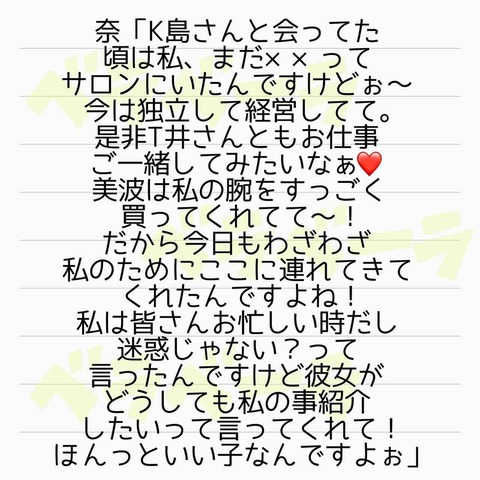 奈「K島さんと会ってた
頃は私、まだ××って
サロンにいたんですけどぉ〜
今は独立して経営してて。
是非T井さんともお仕事
ご一緒してみたいなぁ❤️
美波は私の腕をすっごく
買ってくれてて〜！
だから今日もわざわざ
私のためにここに連れてきて
くれたんですよね！
私は皆さんお忙しい時だし
迷惑じゃない？って
言ったんですけど彼女が
どうしても私の事紹介
したいって言ってくれて！
ほんっといい子なんですよぉ」